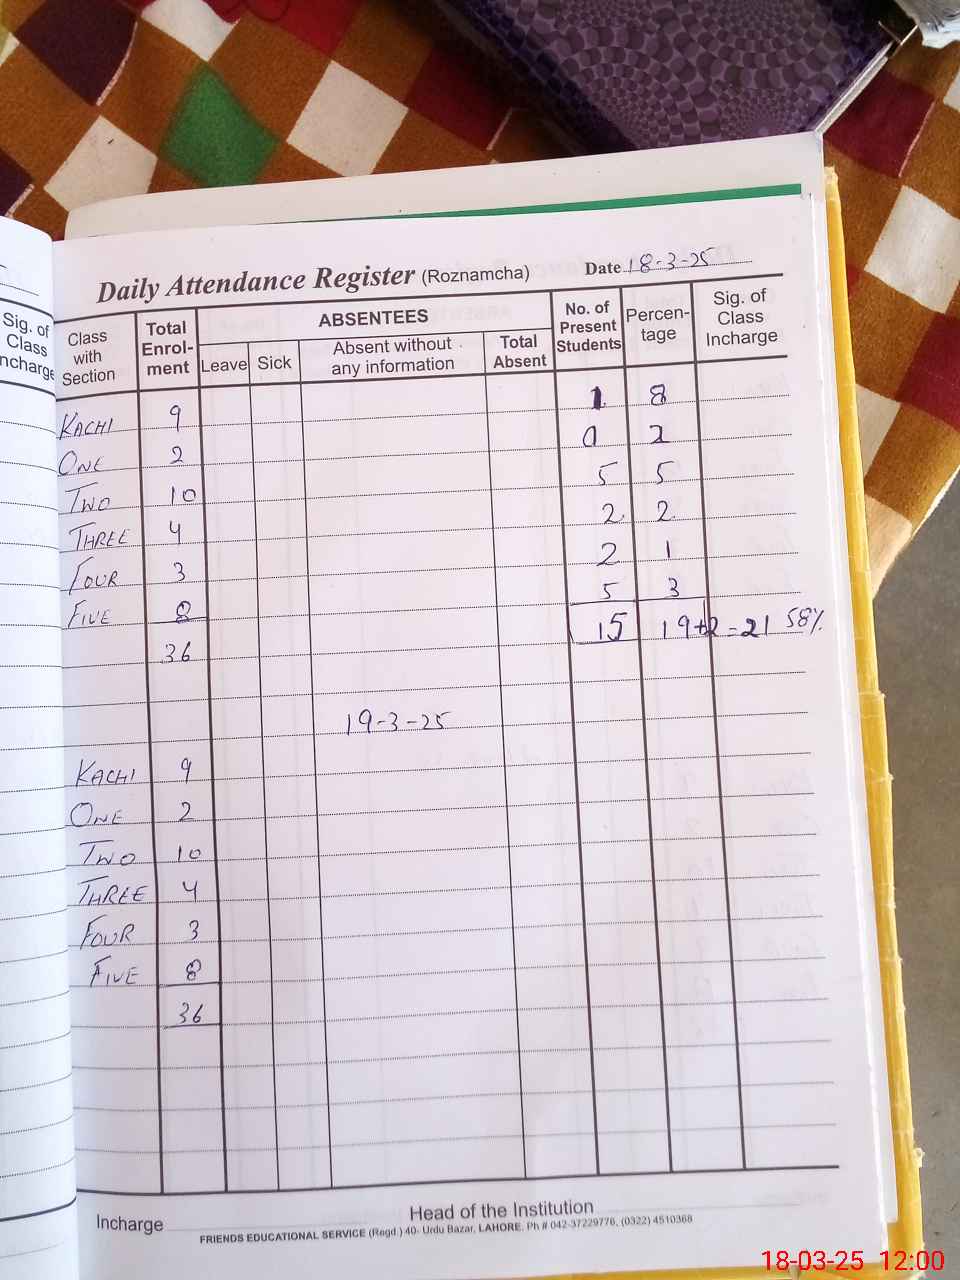 Sig. of
Class
ncharge
Daily Attendance Register (Roznamcha) Date 18-3-25
Class with Section
Total Enrol-ment
ABSENTEES
Leave
Sick
Absent without any information
Total Absent
No. of Present Students
Percen-tage
Sig. of Class Incharge
KACHI 9 1 8
ONE 2 0 2
TWO 10 5 5
THREE 4 2 2
FOUR 3 2 1
FIVE 8 5 3
36 15 19+2=21 58%
19-3-25
KACHI 9
ONE 2
TWO 10
THREE 4
FOUR 3
FIVE 8
36
Incharge Head of the Institution
FRIENDS EDUCATIONAL SERVICE (Regd.) 40- Urdu Bazar, LAHORE. Ph # 042-37229776, (0322) 4510368
18-03-25 12:00